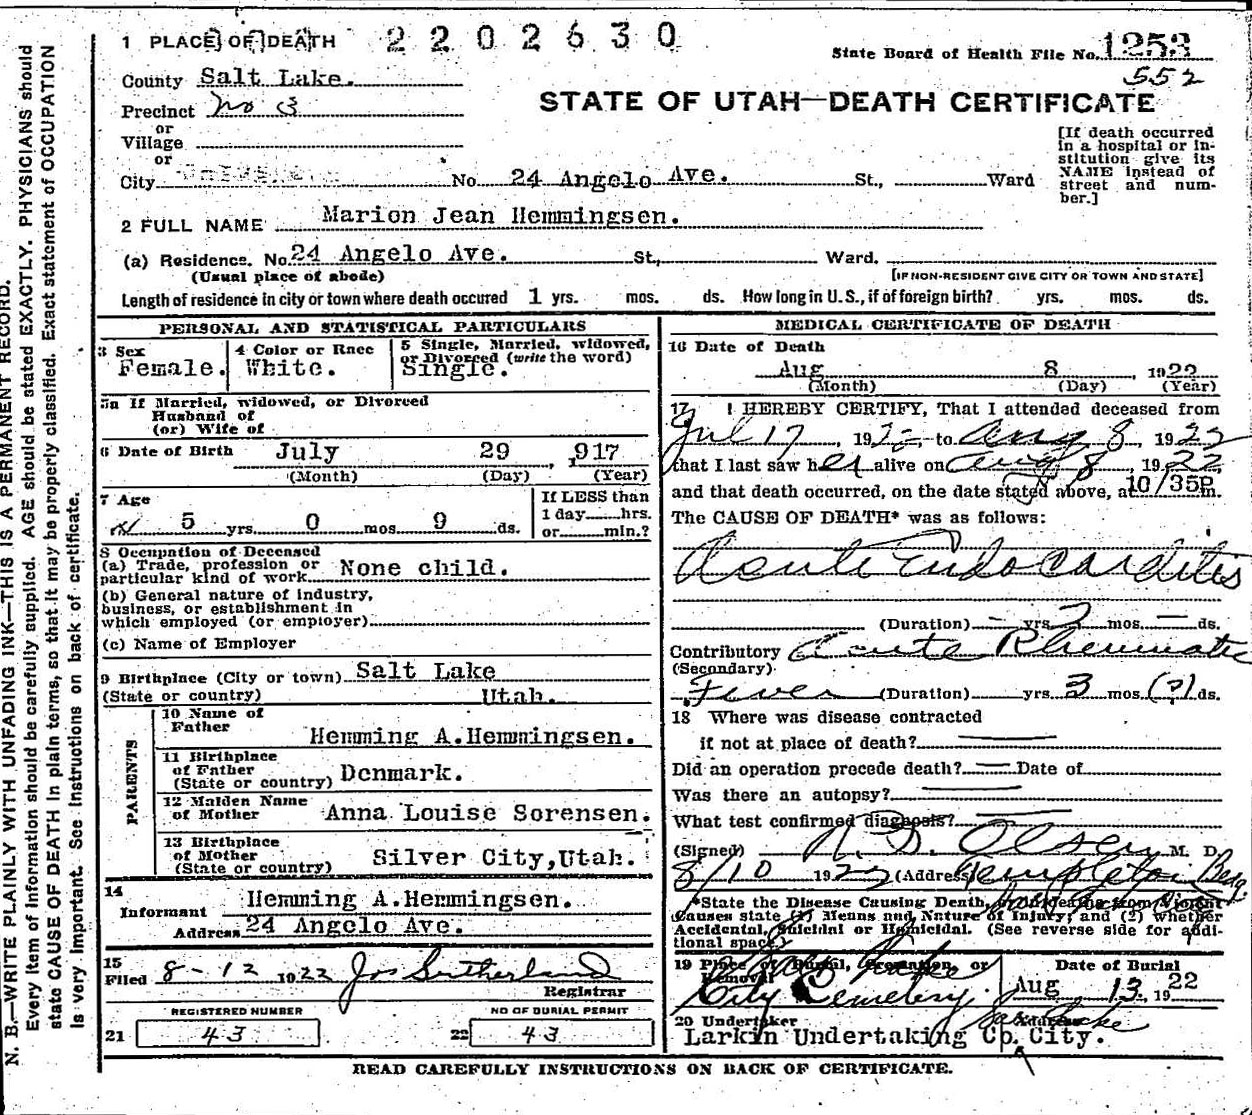 1 PLACE OF DEATH 2202630
State Board of Health File No. 1253
552
County Salt Lake.
STATE OF UTAH—DEATH CERTIFICATE
Precinct No 3
or
Village
or
City No. 24 Angelo Ave. St., Ward
[If death occurred
in a hospital or in-
stitution give its
NAME instead of
street and num-
ber.]
2 FULL NAME Marion Jean Hemmingsen.
(a) Residence. No. 24 Angelo Ave. St., Ward.
(Usual place of abode) [IF NON-RESIDENT GIVE CITY OR TOWN AND STATE]
Length of residence in city or town where death occured 1 yrs. mos. ds. How long in U.S., if of foreign birth? yrs. mos. ds.
PERSONAL AND STATISTICAL PARTICULARS
3 Sex 4 Color or Race 5 Single, Married, widowed,
or Divorced (write the word)
Female. White. Single.
5a If Married, widowed, or Divorced
Husband of
(or) Wife of
6 Date of Birth July 29, 1917
(Month) (Day) (Year)
7 Age If LESS than
1 day hrs.
5 yrs 0 mos 9 ds. or min.?
8 Occupation of Deceased
(a) Trade, profession or
particular kind of work None child.
(b) General nature of industry,
business, or establishment in
which employed (or employer)
(c) Name of Employer
9 Birthplace (City or town) Salt Lake
(State or country) Utah.
PARENTS
10 Name of
Father Hemming A.Hemmingsen.
11 Birthplace
of Father
(State or country) Denmark.
12 Maiden Name
of Mother Anna Louise Sorensen.
13 Birthplace
of Mother
(State or country) Silver City,Utah.
14
Informant Hemming A.Hemmingsen.
Address 24 Angelo Ave.
15
Filed 8-12 1922 Jos Sutherland
Registrar
REGISTERED NUMBER NO OF BURIAL PERMIT
21 43 22 43
MEDICAL CERTIFICATE OF DEATH
16 Date of Death
Aug 8 1922
(Month) (Day) (Year)
17 I HEREBY CERTIFY, That I attended deceased from
Jul 17, 1922, to Aug 8, 1922
that I last saw her alive on Aug 8, 1922
and that death occurred, on the date stated above, at 10/35P m.
The CAUSE OF DEATH* was as follows:
Acute Endocarditis
(Duration) — yrs 2 mos — ds.
Contributory Acute Rheumatic
(Secondary)
Fever (Duration) yrs 3 mos (?) ds.
18 Where was disease contracted
if not at place of death?
Did an operation precede death? Date of
Was there an autopsy?
What test confirmed diagnosis?
(Signed) Olsen M. D.
8/10 1922 (Address) Templeton Bldg
*State the Disease Causing Death, or in deaths from Violent
Causes state (1) Means and Nature of Injury; and (2) whether
Accidental, Suicidal or Homicidal. (See reverse side for addi-
tional space.)
19 Place of Burial, Cremation, or
Removal Date of Burial
City Cemetery. Aug 13, 1922
20 Undertaker Address
Larkin Undertaking Cp. City.
READ CAREFULLY INSTRUCTIONS ON BACK OF CERTIFICATE.
N. B.—WRITE PLAINLY WITH UNFADING INK—THIS IS A PERMANENT RECORD.
Every item of information should be carefully supplied. AGE should be stated EXACTLY. PHYSICIANS should
state CAUSE OF DEATH in plain terms, so that it may be properly classified. Exact statement of OCCUPATION
is very important. See instructions on back of certificate.